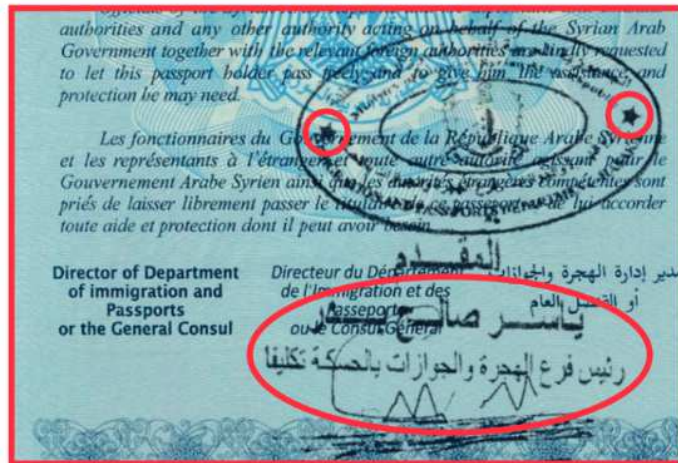 authorities and any other authority acting on behalf of the Syrian Arab
Government together with the relevant foreign authorities are kindly requested
to let this passport holder pass freely and to give him the assistance and
protection he may need.
Les fonctionnaires du Gouvernement de la République Arabe Syrienne
et les représentants à l'étranger et toute autre autorité agissant pour le
Gouvernement Arabe Syrien ainsi que les autorités étrangères compétentes sont
priés de laisser librement passer le titulaire de ce passeport et de lui accorder
toute aide et protection dont il peut avoir besoin.
IMMIGRATION AND PASSPORTS DEPARTMENT
Director of Department
of immigration and
Passports
or the General Consul
Directeur du Département
de l'Immigration et des
Passeports
ou le Consul Général
مدير إدارة الهجرة والجوازات
أو القنصل العام
المقدم
ياسر صالح بدر
رئيس فرع الهجرة والجوازات بالحسكة تكليفا